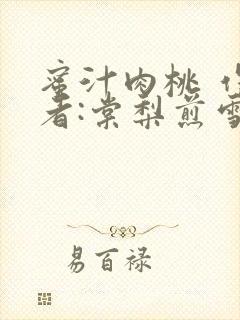 蜜汁肉桃 作
者:棠梨煎雪
易百禄